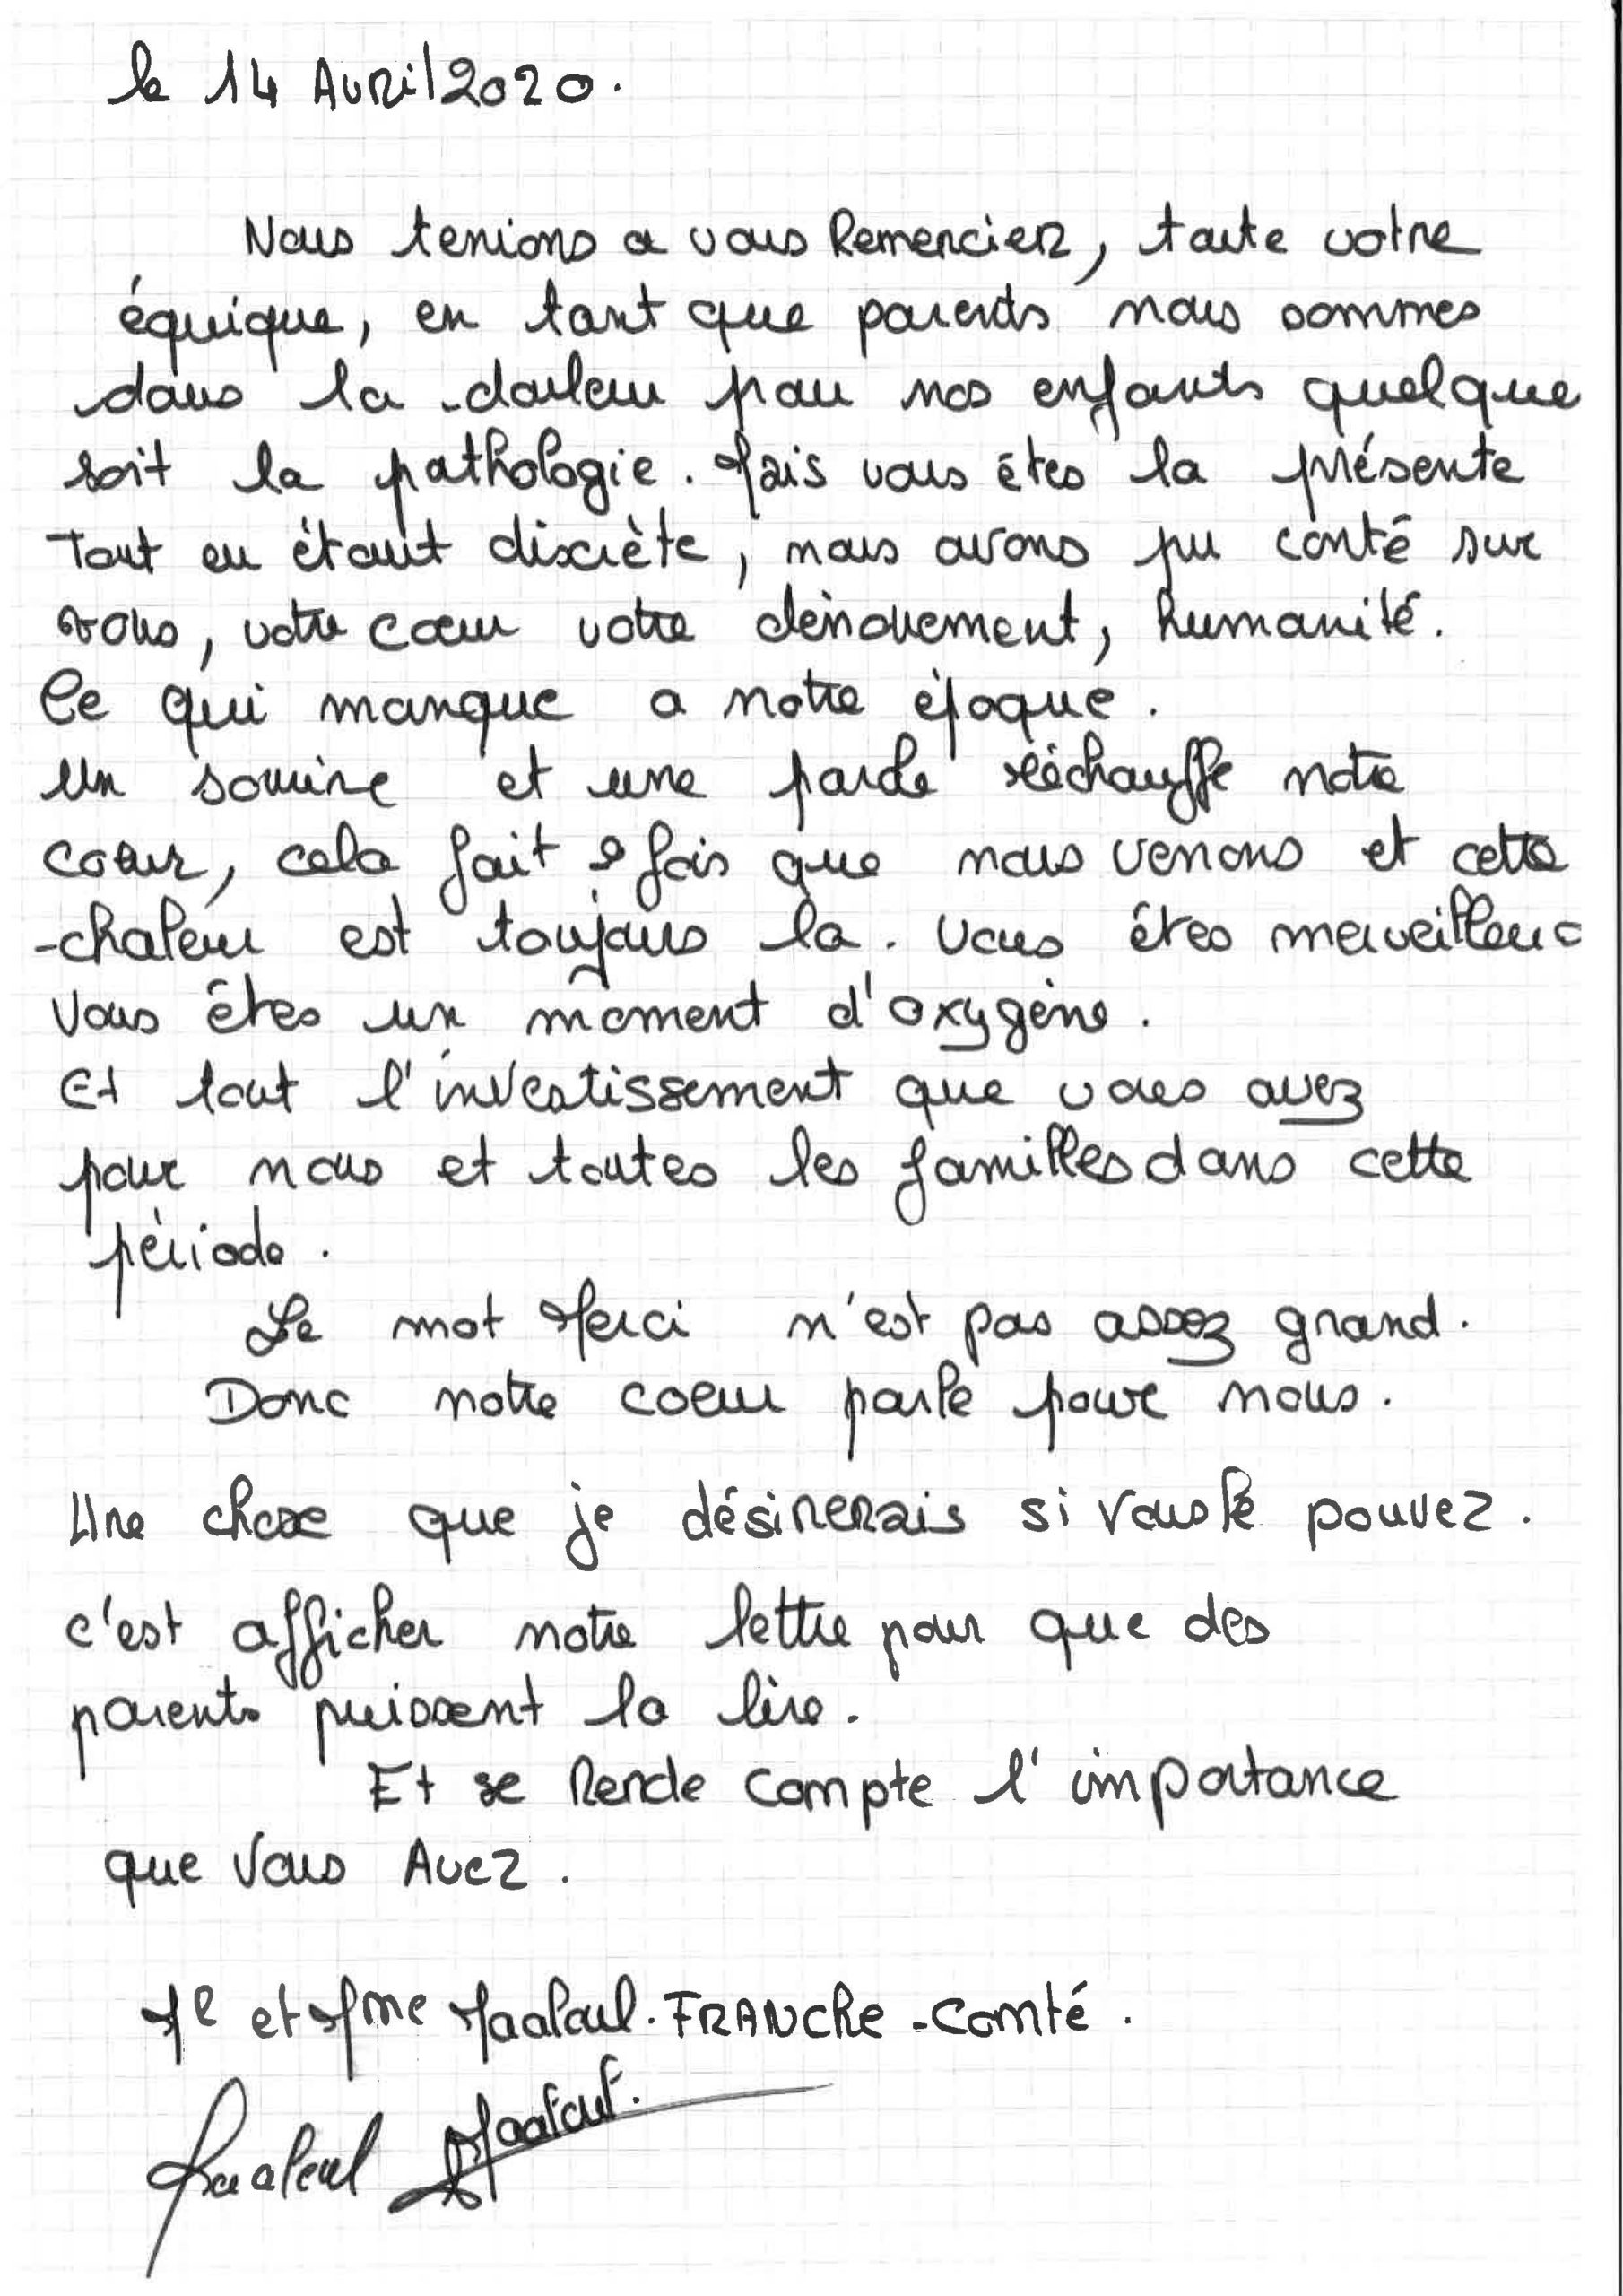 le 14 Avril 2020.
Nous tenions a vous Remercier, toute votre
équique, en tant que parents nous sommes
dans la douleur pour nos enfants quelque
soit la pathologie. Mais vous êtes la présente
Tout en étant discrète, nous avons pu conté sur
vous, votre cœur votre dénouement, humanité.
Ce qui manque a notre époque.
Un sourire et une parole réchauffe notre
coeur, cela fait fois que nous venons et cette
chaleur est toujours la. Vous êtes merveilleux
Vous êtes un moment d'oxygène.
Et tout l'investissement que vous avez
pour nous et toutes les familles dans cette
période.
Le mot Merci n'est pas assez grand.
Donc notre coeur parle pour nous.
Une chose que je désirerais si vous le pouvez.
c'est afficher notre lettre pour que des
parents puissent la lire.
Et se Rende compte l'importance
que Vous Avez.
Mr et Mme Maaloul. FRANChe-Comté.
Maaloul Maaloul.